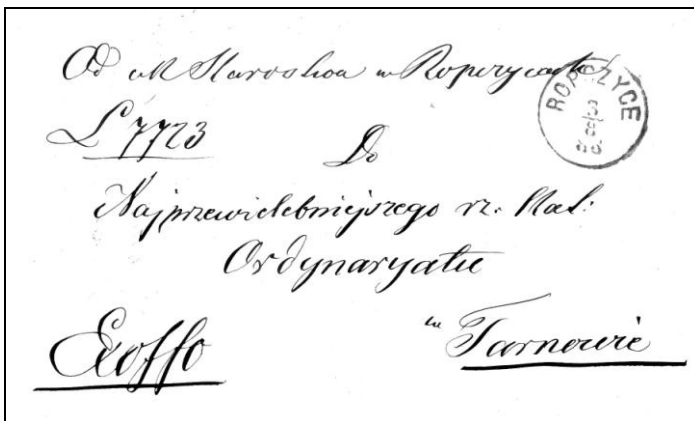 Od ck Starostwa w Ropczycach
ROPCZYCE
L 7723
Do
Najprzewielebniejszego rz. Kat:
Ordynaryatu
w Tarnowie
Exoffo